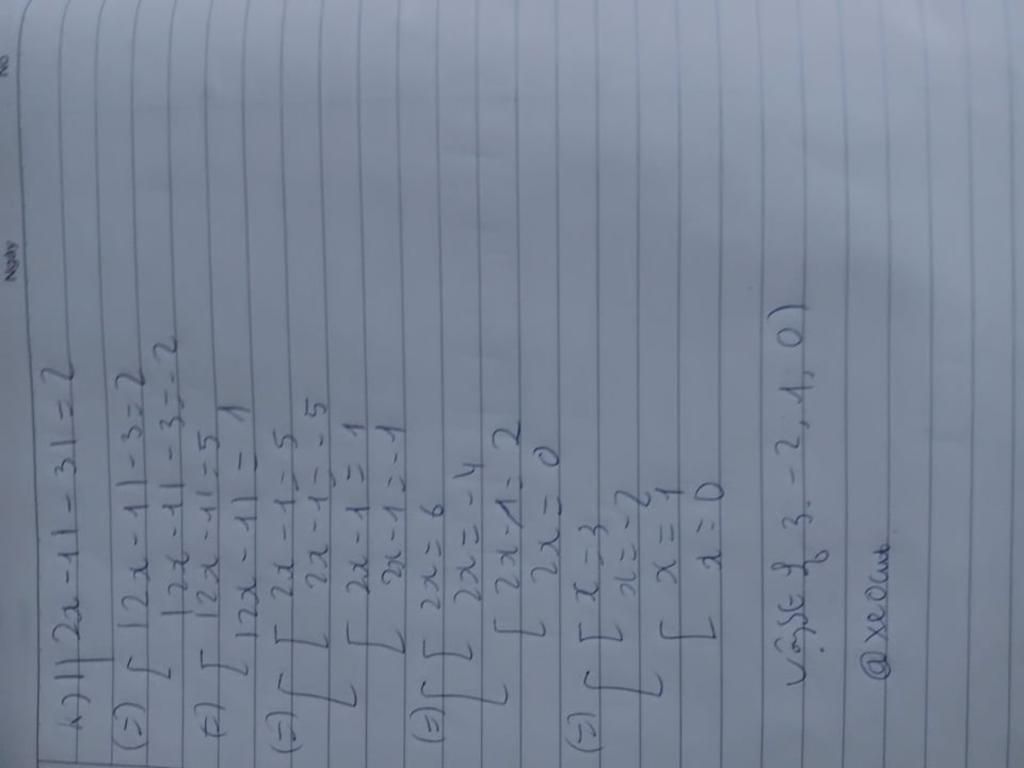 Ngày
No
k) || 2x - 1| - 3| = 2
(=) [ |2x - 1| - 3 = 2
|2x - 1| - 3 = - 2
(=) [ |2x - 1| = 5
|2x - 1| = 1
(=) [ [ 2x - 1 = 5
2x - 1 = - 5
[ 2x - 1 = 1
2x - 1 = - 1
(=) [ [ 2x = 6
2x = - 4
[ 2x - 1 = 2
2x = 0
(=) [ [ x = 3
x = - 2
[ x = 1
x = 0
Vậy x ∈ { 3. - 2, 1, 0 )